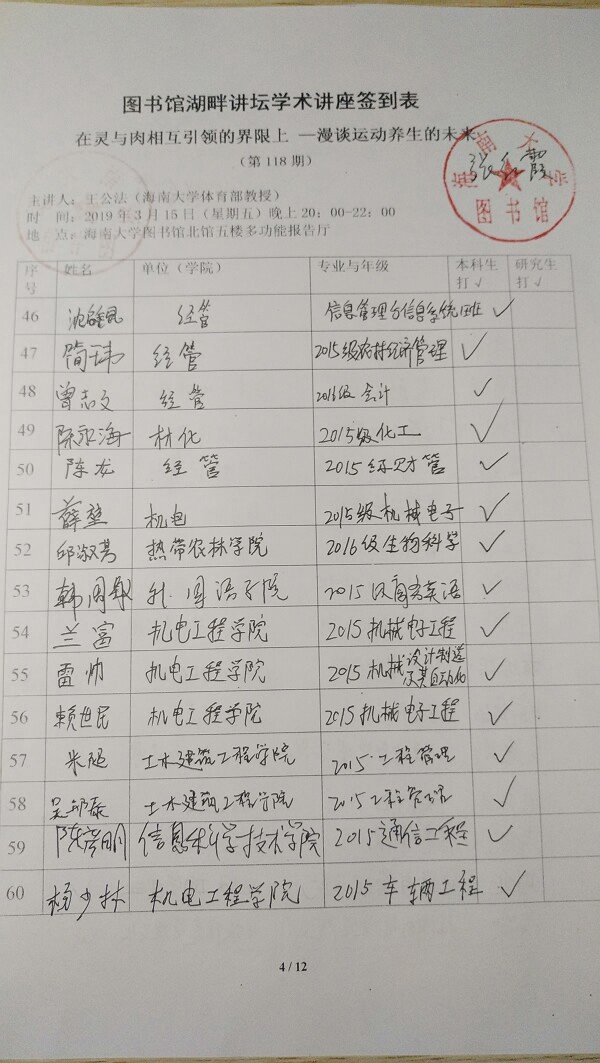 图书馆湖畔讲坛学术讲座签到表
在灵与肉相互引领的界限上 —漫谈运动养生的未来
（第 118 期）
海南大学
图书馆
主讲人：王公法（海南大学体育部教授）
时 间：2019 年 3 月 15 日（星期五）晚上 20：00-22：00
地 点：海南大学图书馆北馆五楼多功能报告厅
序号 姓名 单位（学院） 专业与年级 本科生打√ 研究生打√
46 经管 信息管理与信息系统 √
47 简玮 经管 2015级农林经济管理 √
48 曾志文 经管 2016级 会计 √
49 陈永海 材化 2015级化工 √
50 陈龙 经管 2015级财管 √
51 薛堃 机电 2015级机械电子 √
52 邱淑芳 热带农林学院 2016级生物科学 √
53 韩 外国语学院 2015级商务英语 √
54 兰富 机电工程学院 2015机械电子工程 √
55 雷帅 机电工程学院 2015机械设计制造及其自动化 √
56 赖世民 机电工程学院 2015机械电子工程 √
57 朱 土木建筑工程学院 2015工程管理 √
58 吴 土木建筑工程学院 2015工程管理 √
59 陈彦明 信息科学技术学院 2015通信工程 √
60 杨少林 机电工程学院 2015车辆工程 √
4 / 12